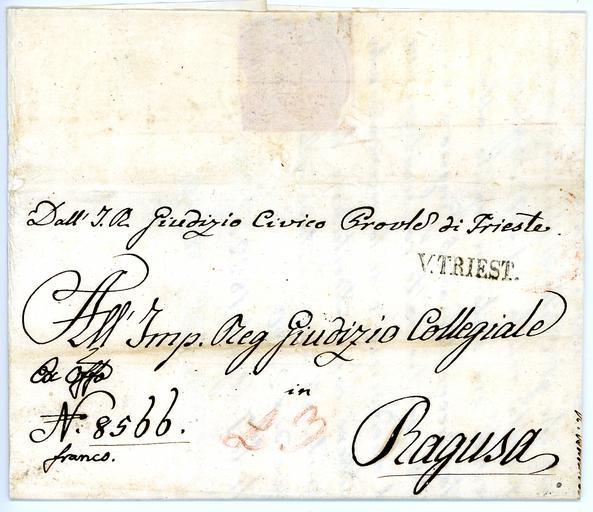 Dall' I. R. Giudizio Civico Provle di Trieste.
V. TRIEST.
All' Imp. Reg Giudizio Collegiale
Ex offo
in
No. 8566.
franco.
Ragusa